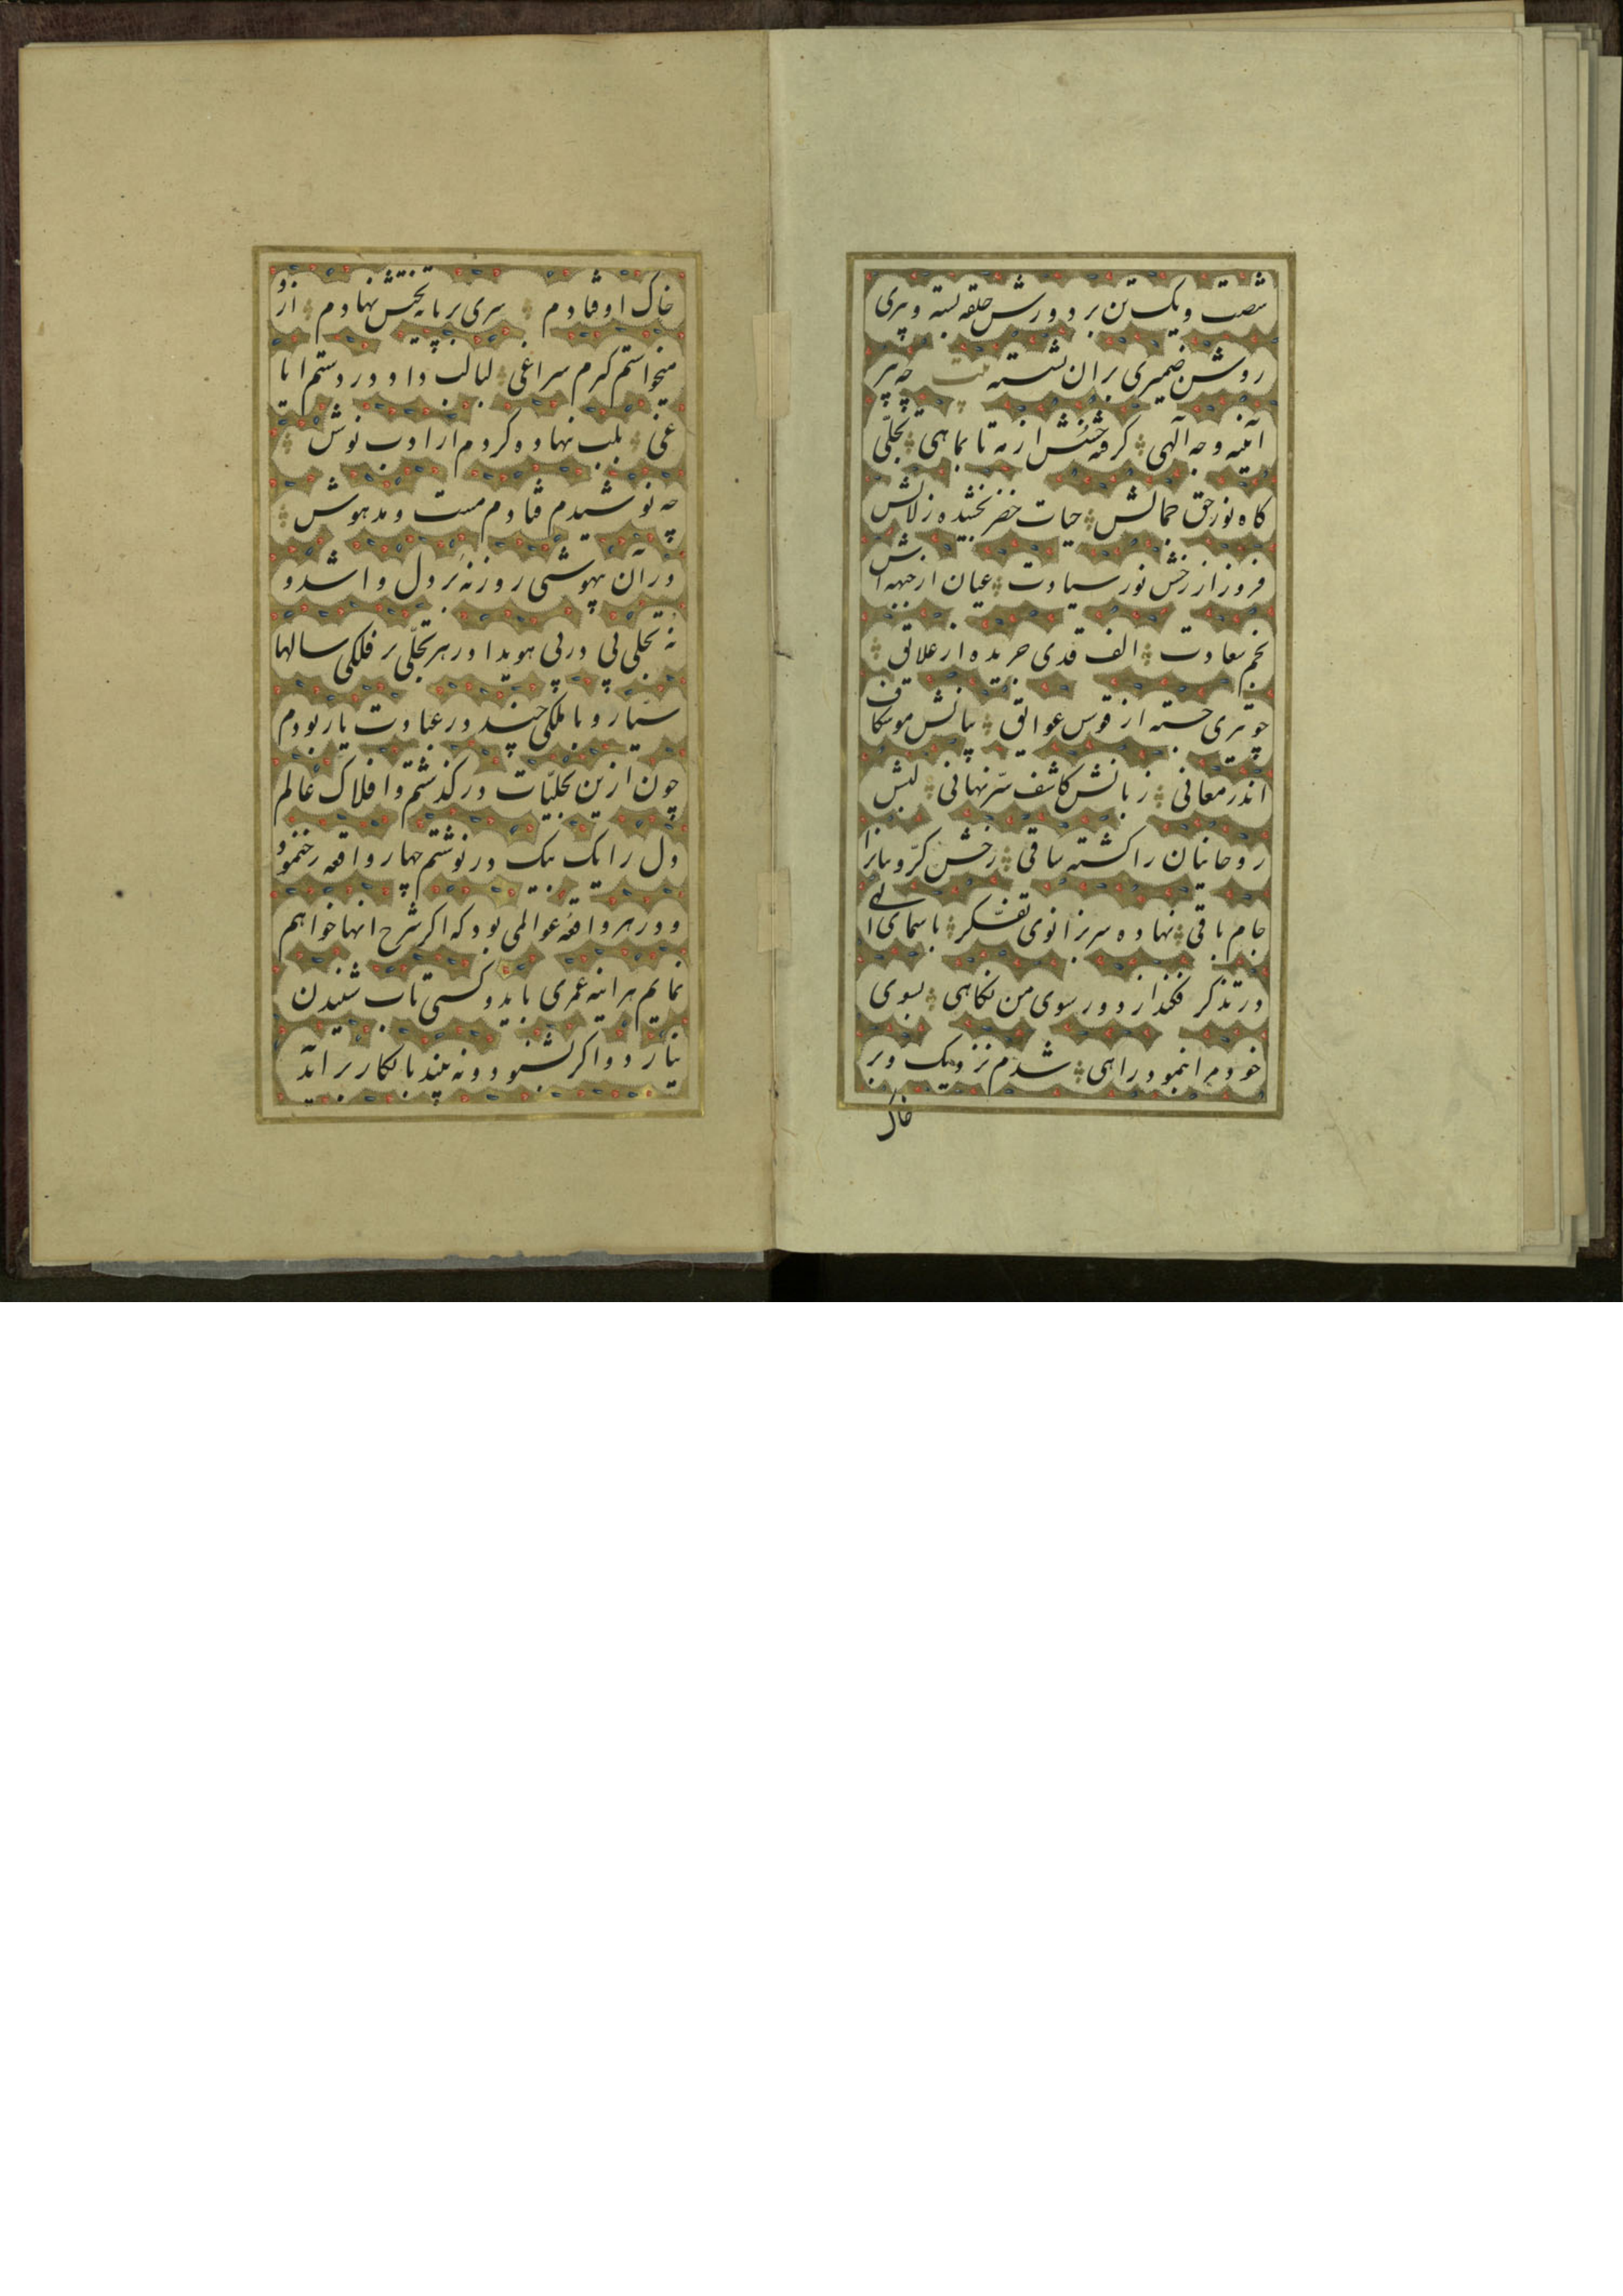 شصت و یک تن بر دورش حلقه بسته و پیری
روشن ضمیری بران نشسته بیت چه پیر
آئینه وجه الهی گرفته خشش از مه تا بماهی تجلّی
کاه نور حق جمالش حیات خضر بخشیده زلالش
فروز از رخش نور سیادت عیان از جبهه اش
نجم سعادت الف قدی جریده از علائق
چو تیری جسته از قوس عوائق بیانش موشکاف
اندر معانی زبانش کاشف سرّ نهانی لبش
روحانیان را کشته ساقی رخش کرّوبیانرا
جام باقی نهاده سر بزانوی تفکّر باسمای الهی
در تذکر فکند از دور سوی من نکاهی بسوی
خودم انمود راهی شدم نزدیک و بر
خاک
خاک اوفتادم سری بر پایه تختش نهادم ازو
میخواستم کرم سراغی لبالب داد در دستم ایا
غی بلب نهاده کردم از ادب نوش
چه نوشیدم فتادم مست و مدهوش
در آن بیهوشی روزنهٔ بر دل وا شد و
نه تجلی پی در پی هویدا در هر تجلّی بر فلکی سالها
سیّار و با ملکی چند در عبادت یار بودم
چون ازین تجلیّات در کذشتم و افلاک عالم
دل را یک بیک در نوشتم چهار واقعه رخ نمود
و در هر واقعهٔ عوالمی بود که اکر شرح انها خواهم
نمایم هر اینه عمری باید و کسی تاب شنیدن
نیارد و اکر بشنود و نه بیند بانکار بر اید